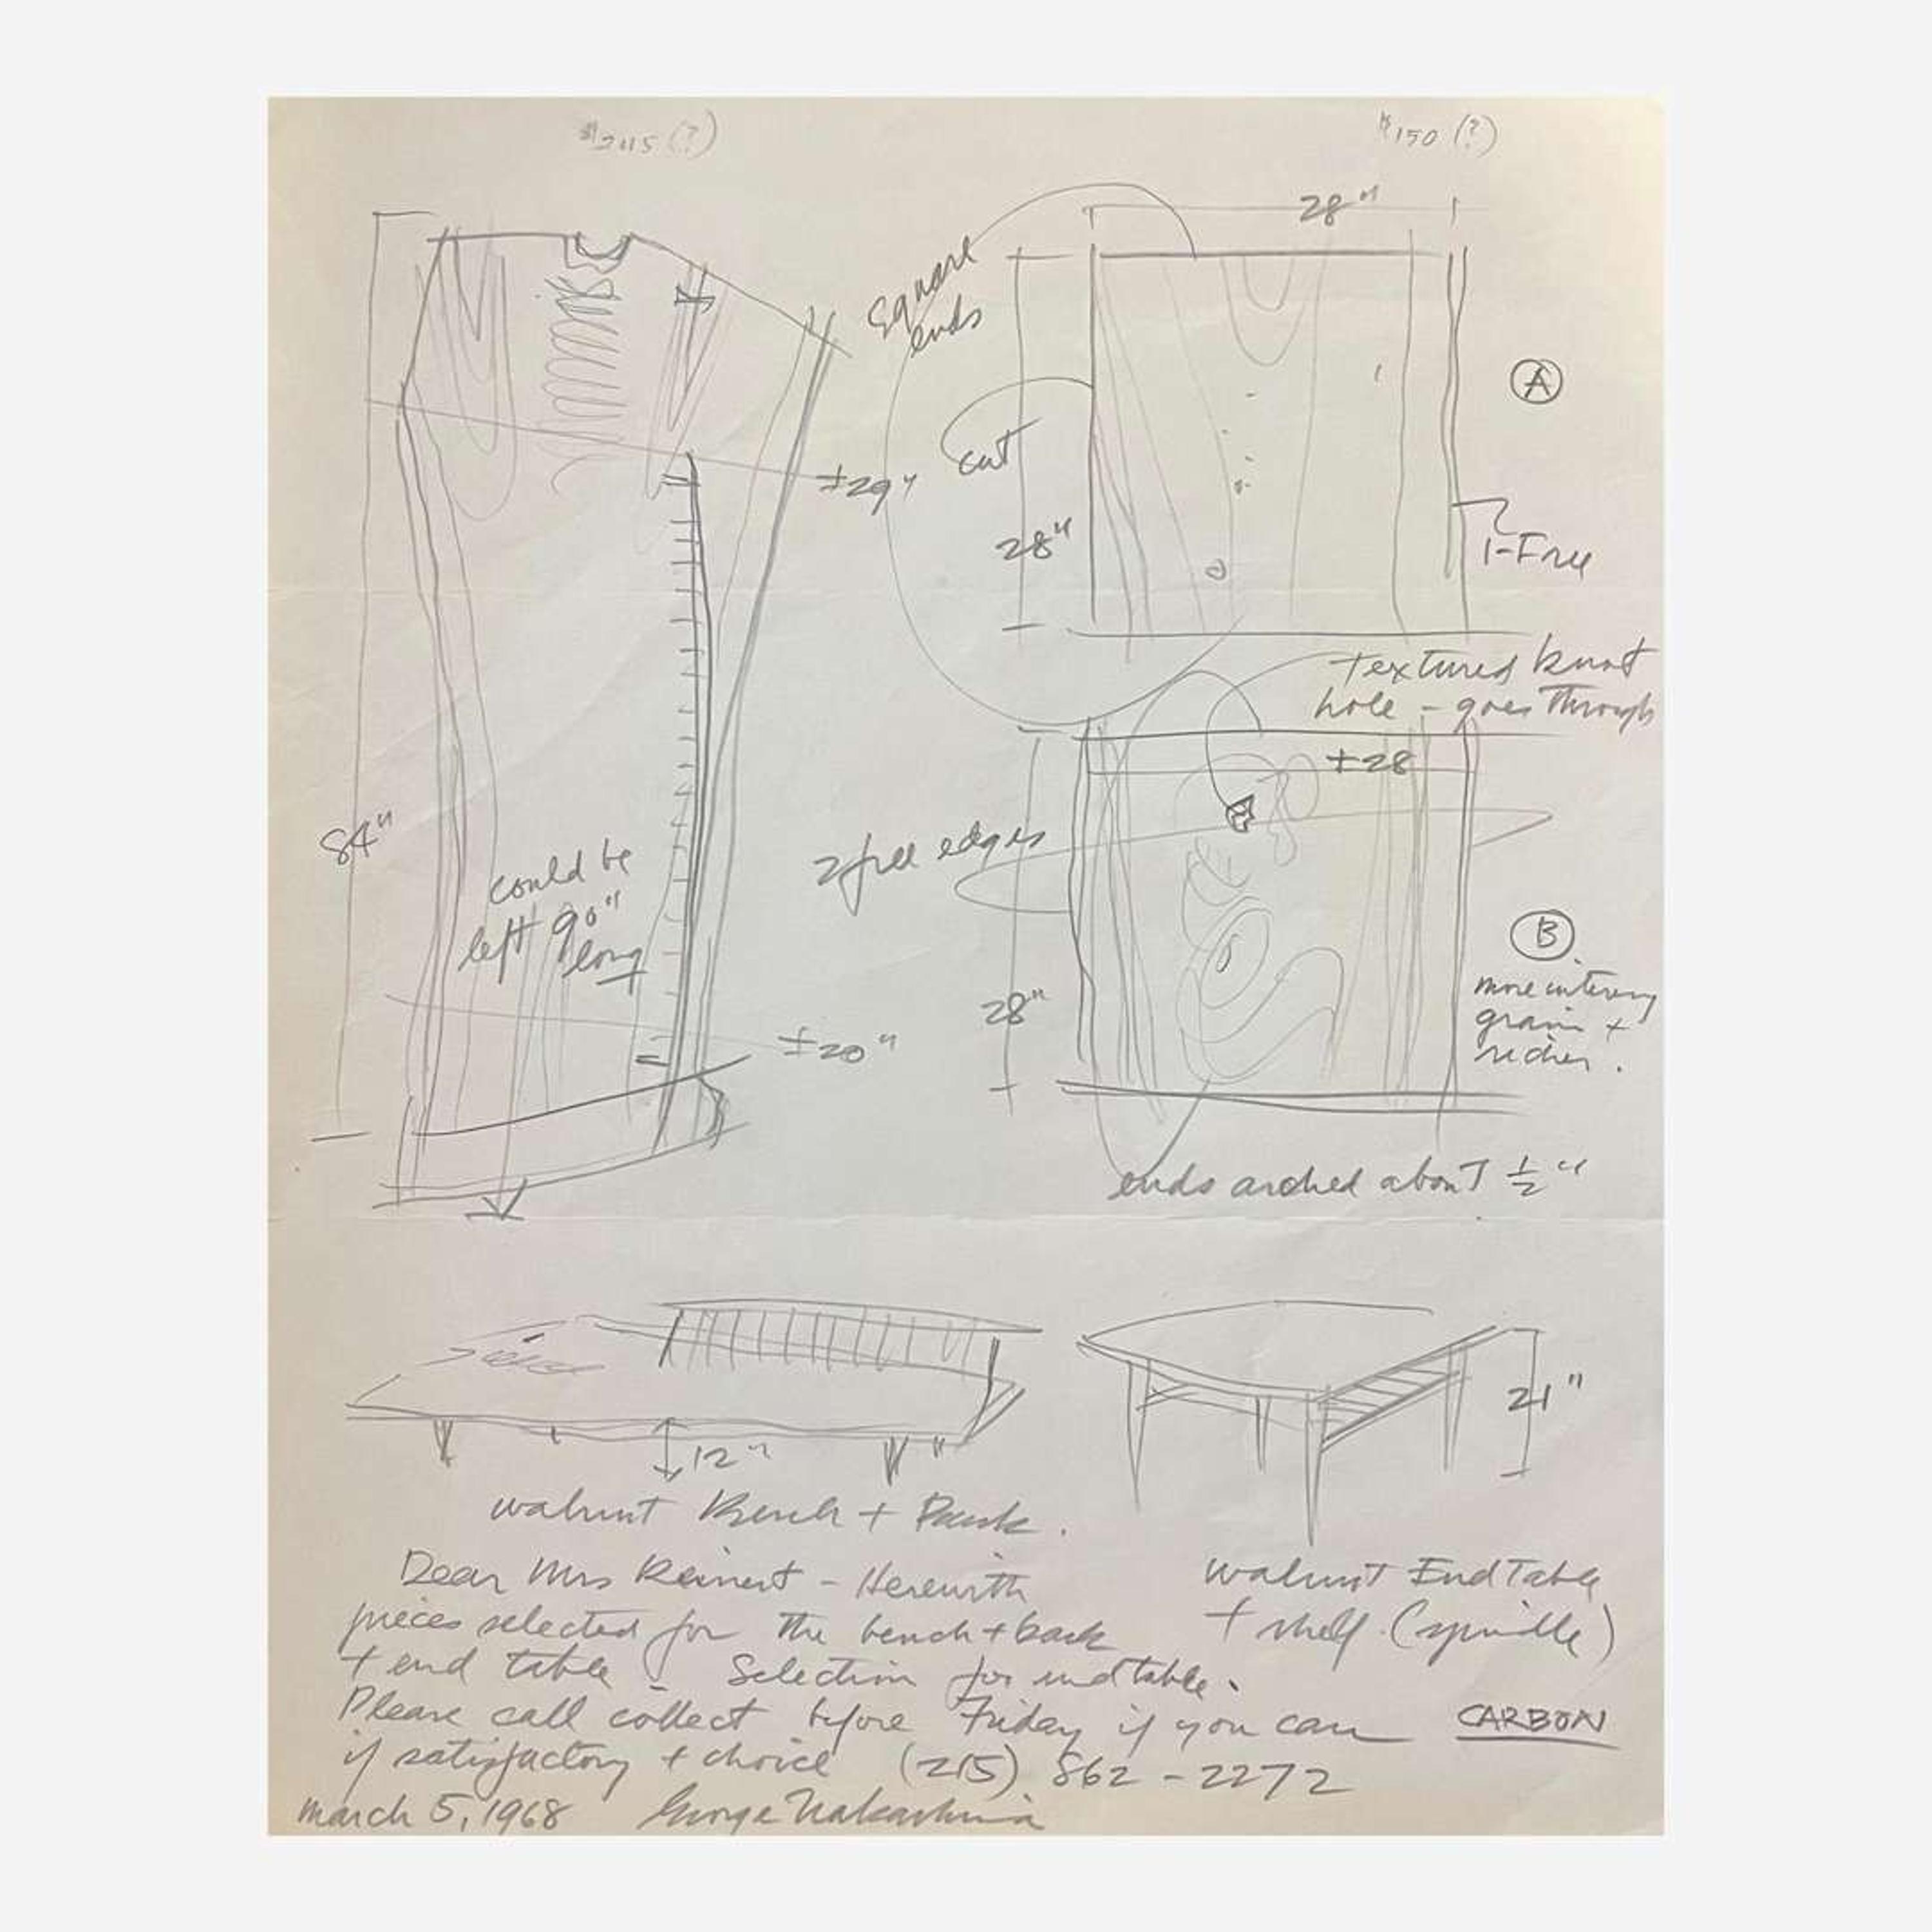 $245 (?)
$150 (?)
28"
square
ends
cut
28"
A
1-Free
±29"
textured knot
hole - goes through
±28
2 free edges
84"
could be
left 90"
long
28"
B
more
grain +
richer.
±20"
ends arched about ½"
12"
21"
walnut Bench + Back.
walnut End Table
+ shelf. (spindle)
Dear Mrs Reinert - Herewith
pieces selected for the bench + back
+ end table - Selection for end table.
Please call collect before Friday if you can
if satisfactory + choice (215) 862-2272
CARBON
March 5, 1968 George Nakashima